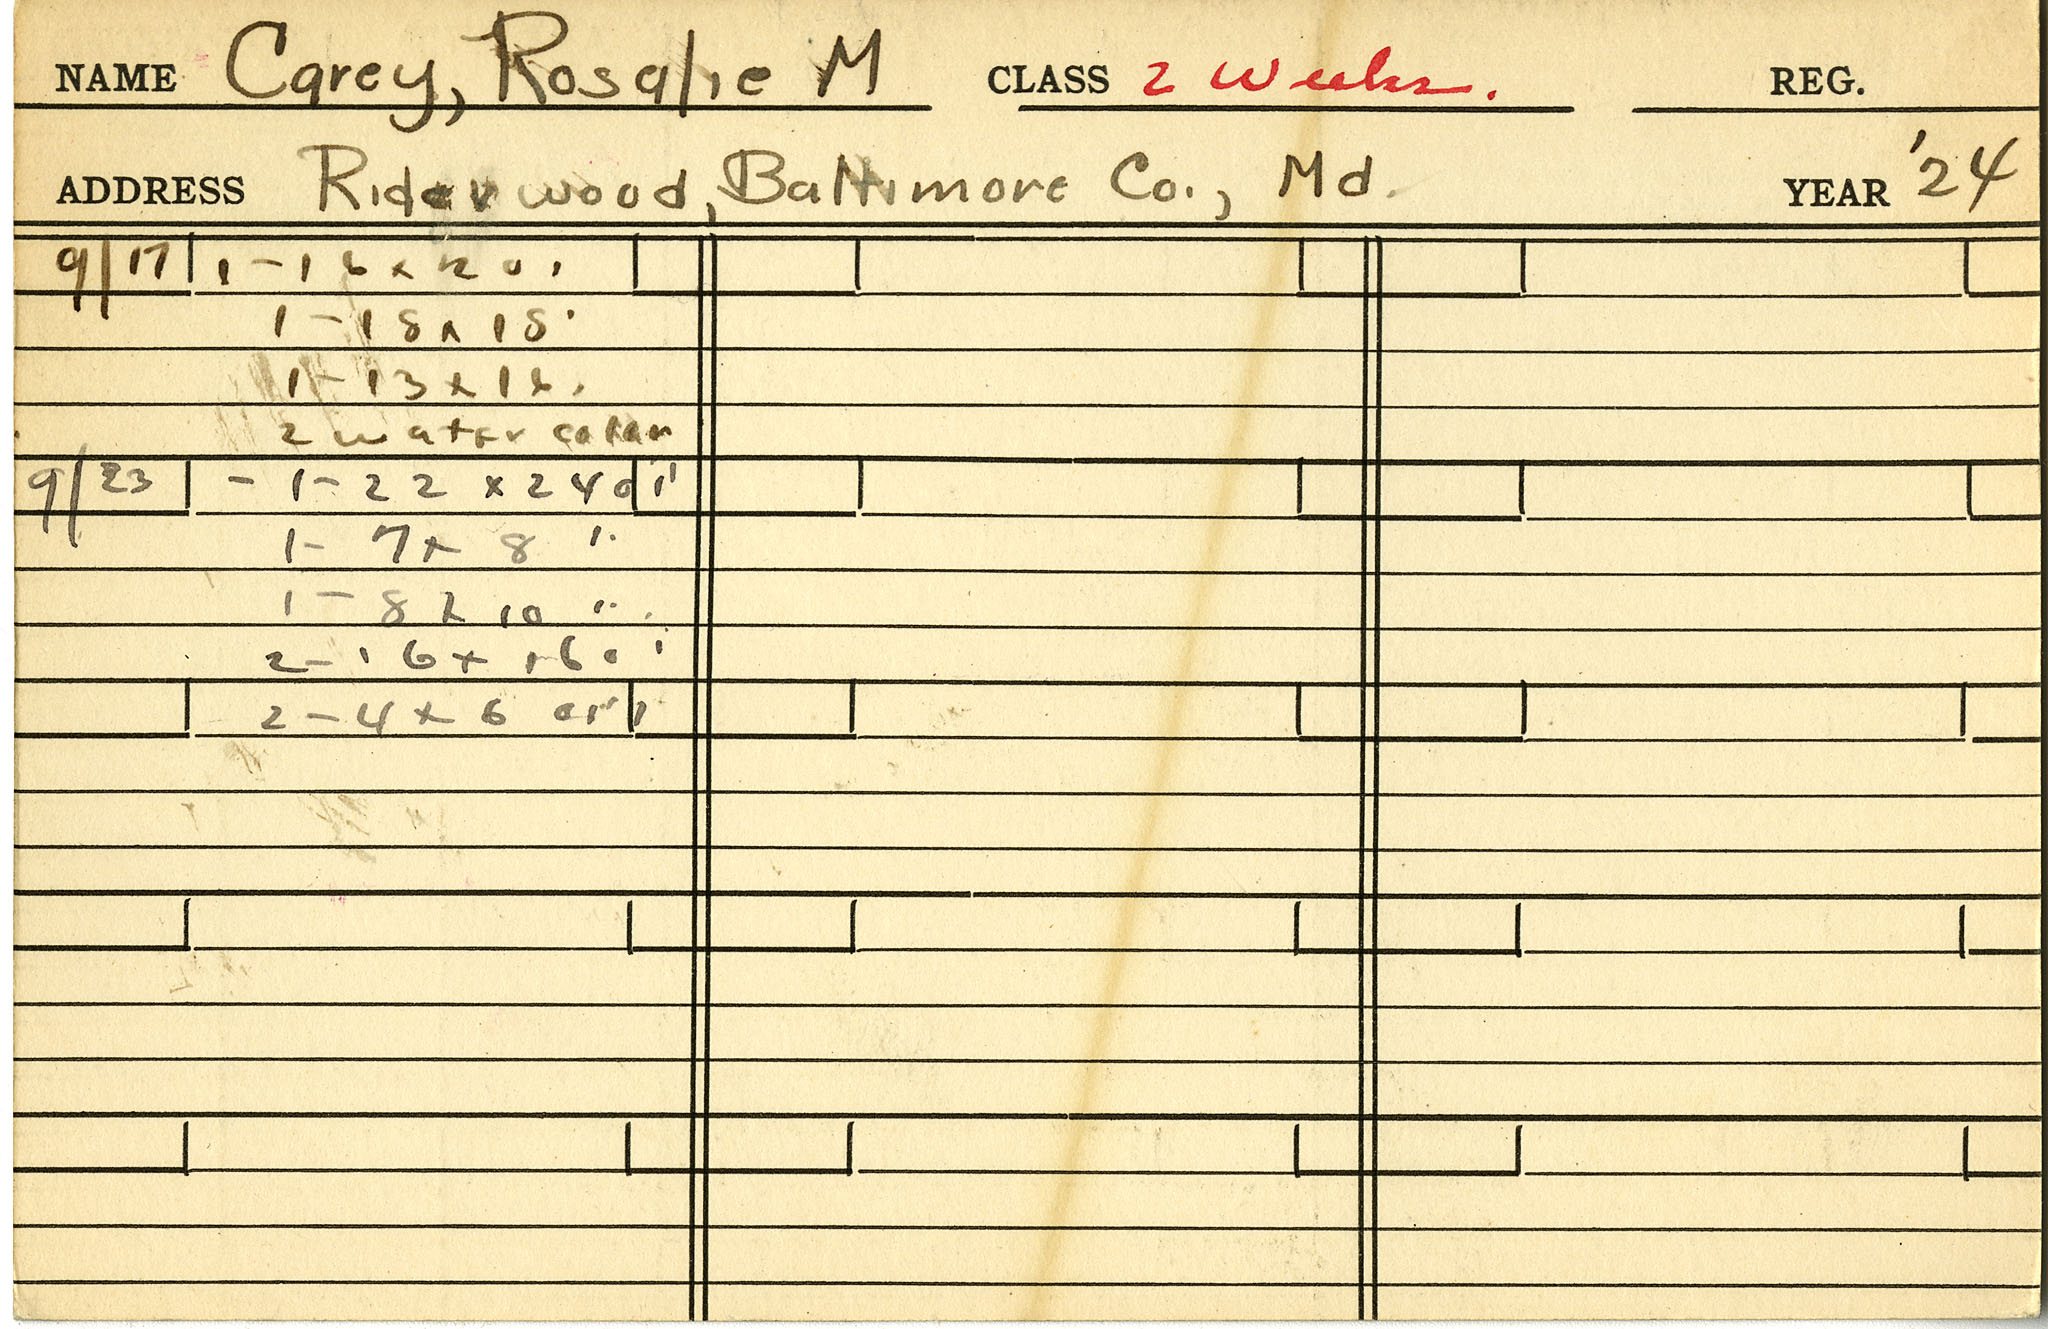 NAME Carey, Rosalie M CLASS 2 Weeks. REG.
ADDRESS Riderwood, Baltimore Co., Md. YEAR '24
9/17 1-16x20"
1-18x18"
1-13x16.
2 water color
9/23 - 1-22 x 24 oil
1- 7x8 "
1- 8x10 "
2-16x16 oil
2-4x6 oil